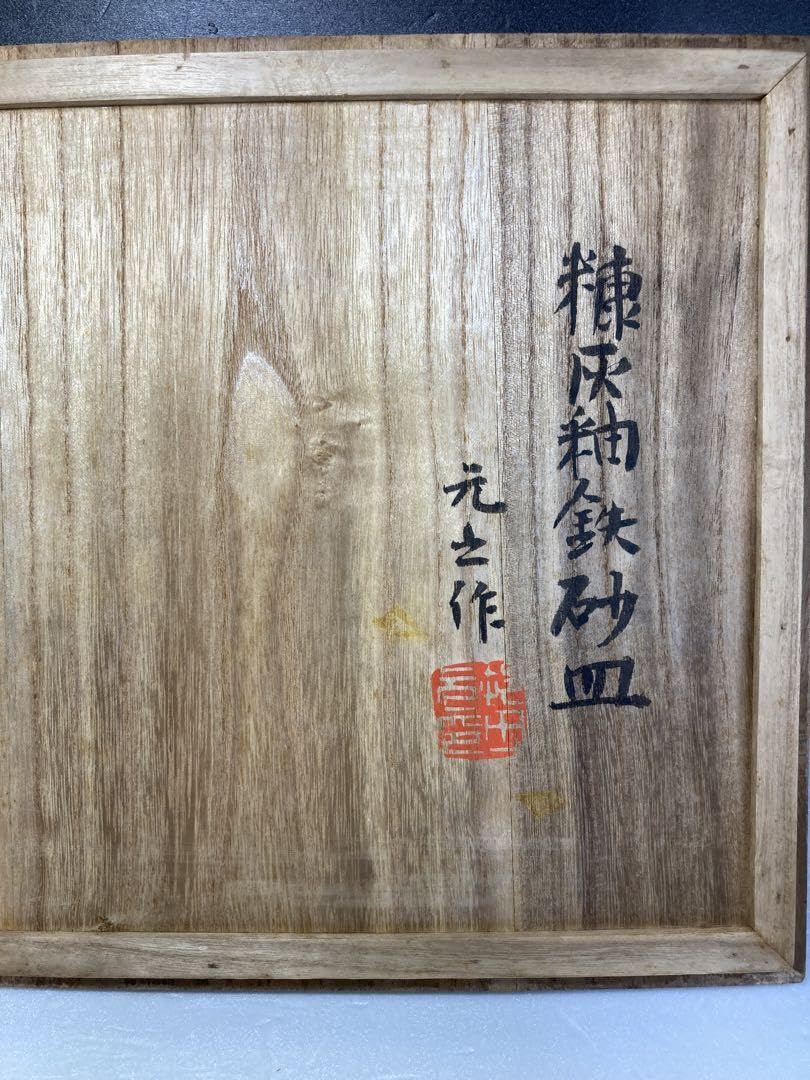 糠灰釉鉄砂皿
元土作